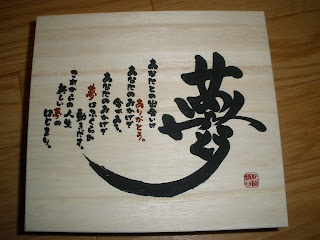 夢
あなたとの出会いに
ありがとう。
あなたのおかげで
今があり、
あなたのおかげで
夢はふくらみ
動きだす。
これからの人生
新しい夢の
はじまり。